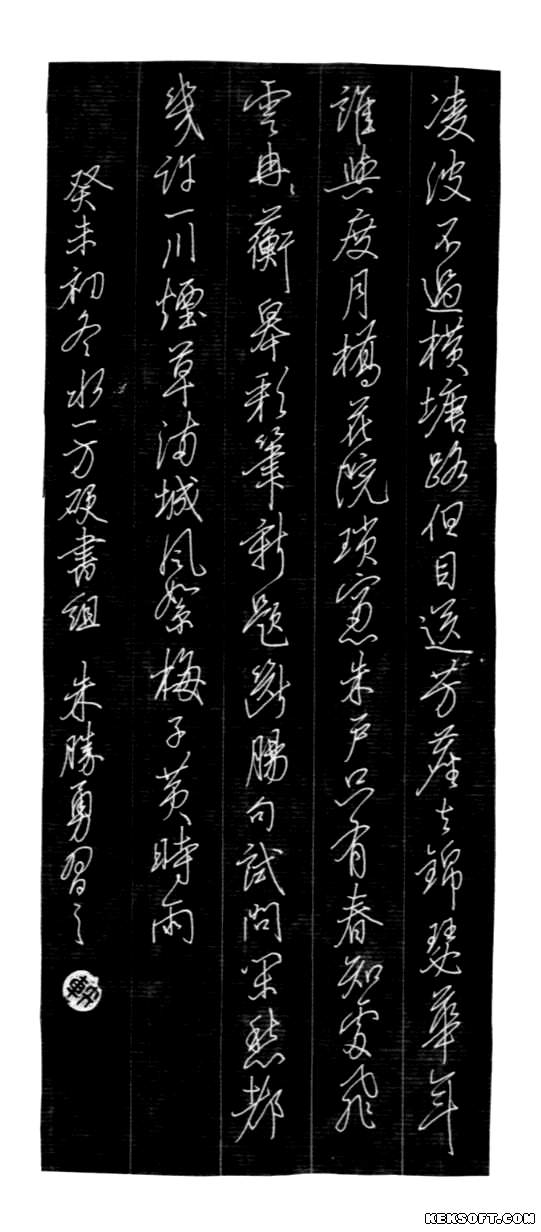 凌波不過橫塘路但目送芳塵去錦瑟華年
誰與度月橋花院瑣窗朱户只有春知處飛
雲冉冉蘅皋彩筆新題斷腸句試問閑愁都
幾許一川煙草滿城風絮梅子黄時雨
癸未初冬水一方硬書組 朱勝勇習之
KEKSOFT.COM